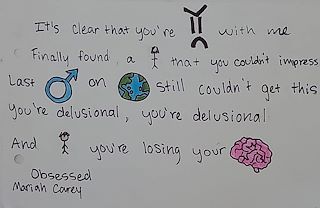 It's clear that you're with me
Finally found a that you couldn't impress
Last on still couldn't get this
you're delusional, you're delusional
And you're losing your
Obsessed
Mariah Carey